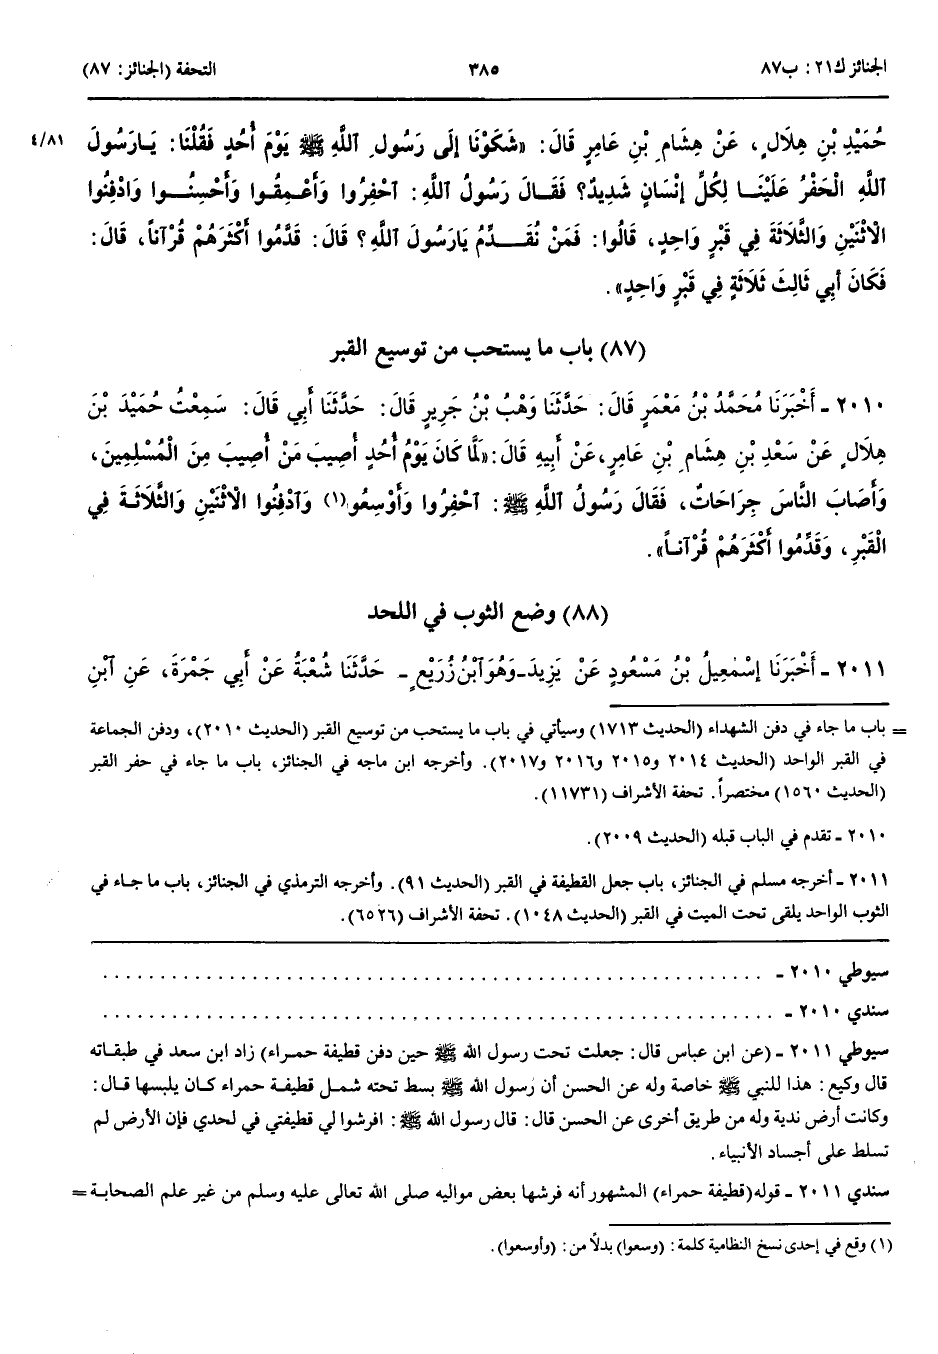 الجنائز ك٢١: ب٨٧ ٣٨٥ التحفة (الجنائز: ٨٧)
حُمَيْدِ بْنِ هِلَالٍ، عَنْ هِشَامِ بْنِ عَامِرٍ قَالَ: «شَكَوْنَا إلَى رَسُولِ اللَّهِ ﷺ يَوْمَ أُحُدٍ فَقُلْنَا: يَارَسُولَ ٤/٨١
اللَّهِ الْحَفْرُ عَلَيْنَا لِكُلِّ إنْسَانٍ شَدِيدٌ؟ فَقَالَ رَسُولُ اللَّهِ: احْفِرُوا وَأَعْمِقُوا وَأَحْسِنُوا وَادْفِنُوا
الْاثْنَيْنِ وَالثَّلَاثَةَ فِي قَبْرٍ وَاحِدٍ، قَالُوا: فَمَنْ نُقَدِّمُ يَارَسُولَ اللَّهِ؟ قَالَ: قَدِّمُوا أَكْثَرَهُمْ قُرْآناً، قَالَ:
فَكَانَ أبِي ثَالِثَ ثَلَاثَةٍ فِي قَبْرٍ وَاحِدٍ».
(٨٧) باب ما يستحب من توسيع القبر
٢٠١٠ - أَخْبَرَنَا مُحَمَّدُ بْنُ مَعْمَرٍ قَالَ: حَدَّثَنَا وَهْبُ بْنُ جَرِيرٍ قَالَ: حَدَّثَنَا أَبِي قَالَ: سَمِعْتُ حُمَيْدَ بْنَ
هِلَالٍ عَنْ سَعْدِ بْنِ هِشَامِ بْنِ عَامِرٍ، عَنْ أَبِيهِ قَالَ: «لَمَّا كَانَ يَوْمُ أُحُدٍ أُصِيبَ مَنْ أُصِيبَ مِنَ الْمُسْلِمِينَ،
وَأَصَابَ النَّاسَ جِرَاحَاتٌ، فَقَالَ رَسُولُ اللَّهِ ﷺ: احْفِرُوا وَأَوْسِعُوا(١) وَادْفِنُوا الْاثْنَيْنِ وَالثَّلَاثَةَ فِي
الْقَبْرِ، وَقَدِّمُوا أَكْثَرَهُمْ قُرْآناً».
(٨٨) وضع الثوب في اللحد
٢٠١١ - أَخْبَرَنَا إسْمٰعِيلُ بْنُ مَسْعُودٍ عَنْ يَزِيدَ - وَهُوَ ابْنُ زُرَيْعٍ - حَدَّثَنَا شُعْبَةُ عَنْ أَبِي جَمْرَةَ، عَنِ ابْنِ
= باب ما جاء في دفن الشهداء (الحديث ١٧١٣) وسيأتي في باب ما يستحب من توسيع القبر (الحديث ٢٠١٠)، ودفن الجماعة
في القبر الواحد (الحديث ٢٠١٤ و٢٠١٥ و٢٠١٦ و٢٠١٧). وأخرجه ابن ماجه في الجنائز، باب ما جاء في حفر القبر
(الحديث ١٥٦٠) مختصراً. تحفة الأشراف (١١٧٣١).
٢٠١٠ - تقدم في الباب قبله (الحديث ٢٠٠٩).
٢٠١١ - أخرجه مسلم في الجنائز، باب جعل القطيفة في القبر (الحديث ٩١). وأخرجه الترمذي في الجنائز، باب ما جاء في
الثوب الواحد يلقى تحت الميت في القبر (الحديث ١٠٤٨). تحفة الأشراف (٦٥٢٦).
سيوطي ٢٠١٠ - . . . . . . . . . . . . . . . . . . . . . . . . . . . . . .
سندي ٢٠١٠ - . . . . . . . . . . . . . . . . . . . . . . . . . . . . . .
سيوطي ٢٠١١ - (عن ابن عباس قال: جعلت تحت رسول الله ﷺ حين دفن قطيفة حمراء) زاد ابن سعد في طبقاته
قال وكيع: هذا للنبي ﷺ خاصة وله عن الحسن أن رسول الله ﷺ بسط تحته شمل قطيفة حمراء كان يلبسها قال:
وكانت أرض ندية وله من طريق أخرى عن الحسن قال: قال رسول الله ﷺ: افرشوا لي قطيفتي في لحدي فإن الأرض لم
تسلط على أجساد الأنبياء.
سندي ٢٠١١ - قوله (قطيفة حمراء) المشهور أنه فرشها بعض مواليه صلى الله تعالى عليه وسلم من غير علم الصحابة =
(١) وقع في إحدى نسخ النظامية كلمة: (وسعوا) بدلاً من: (وأوسعوا).